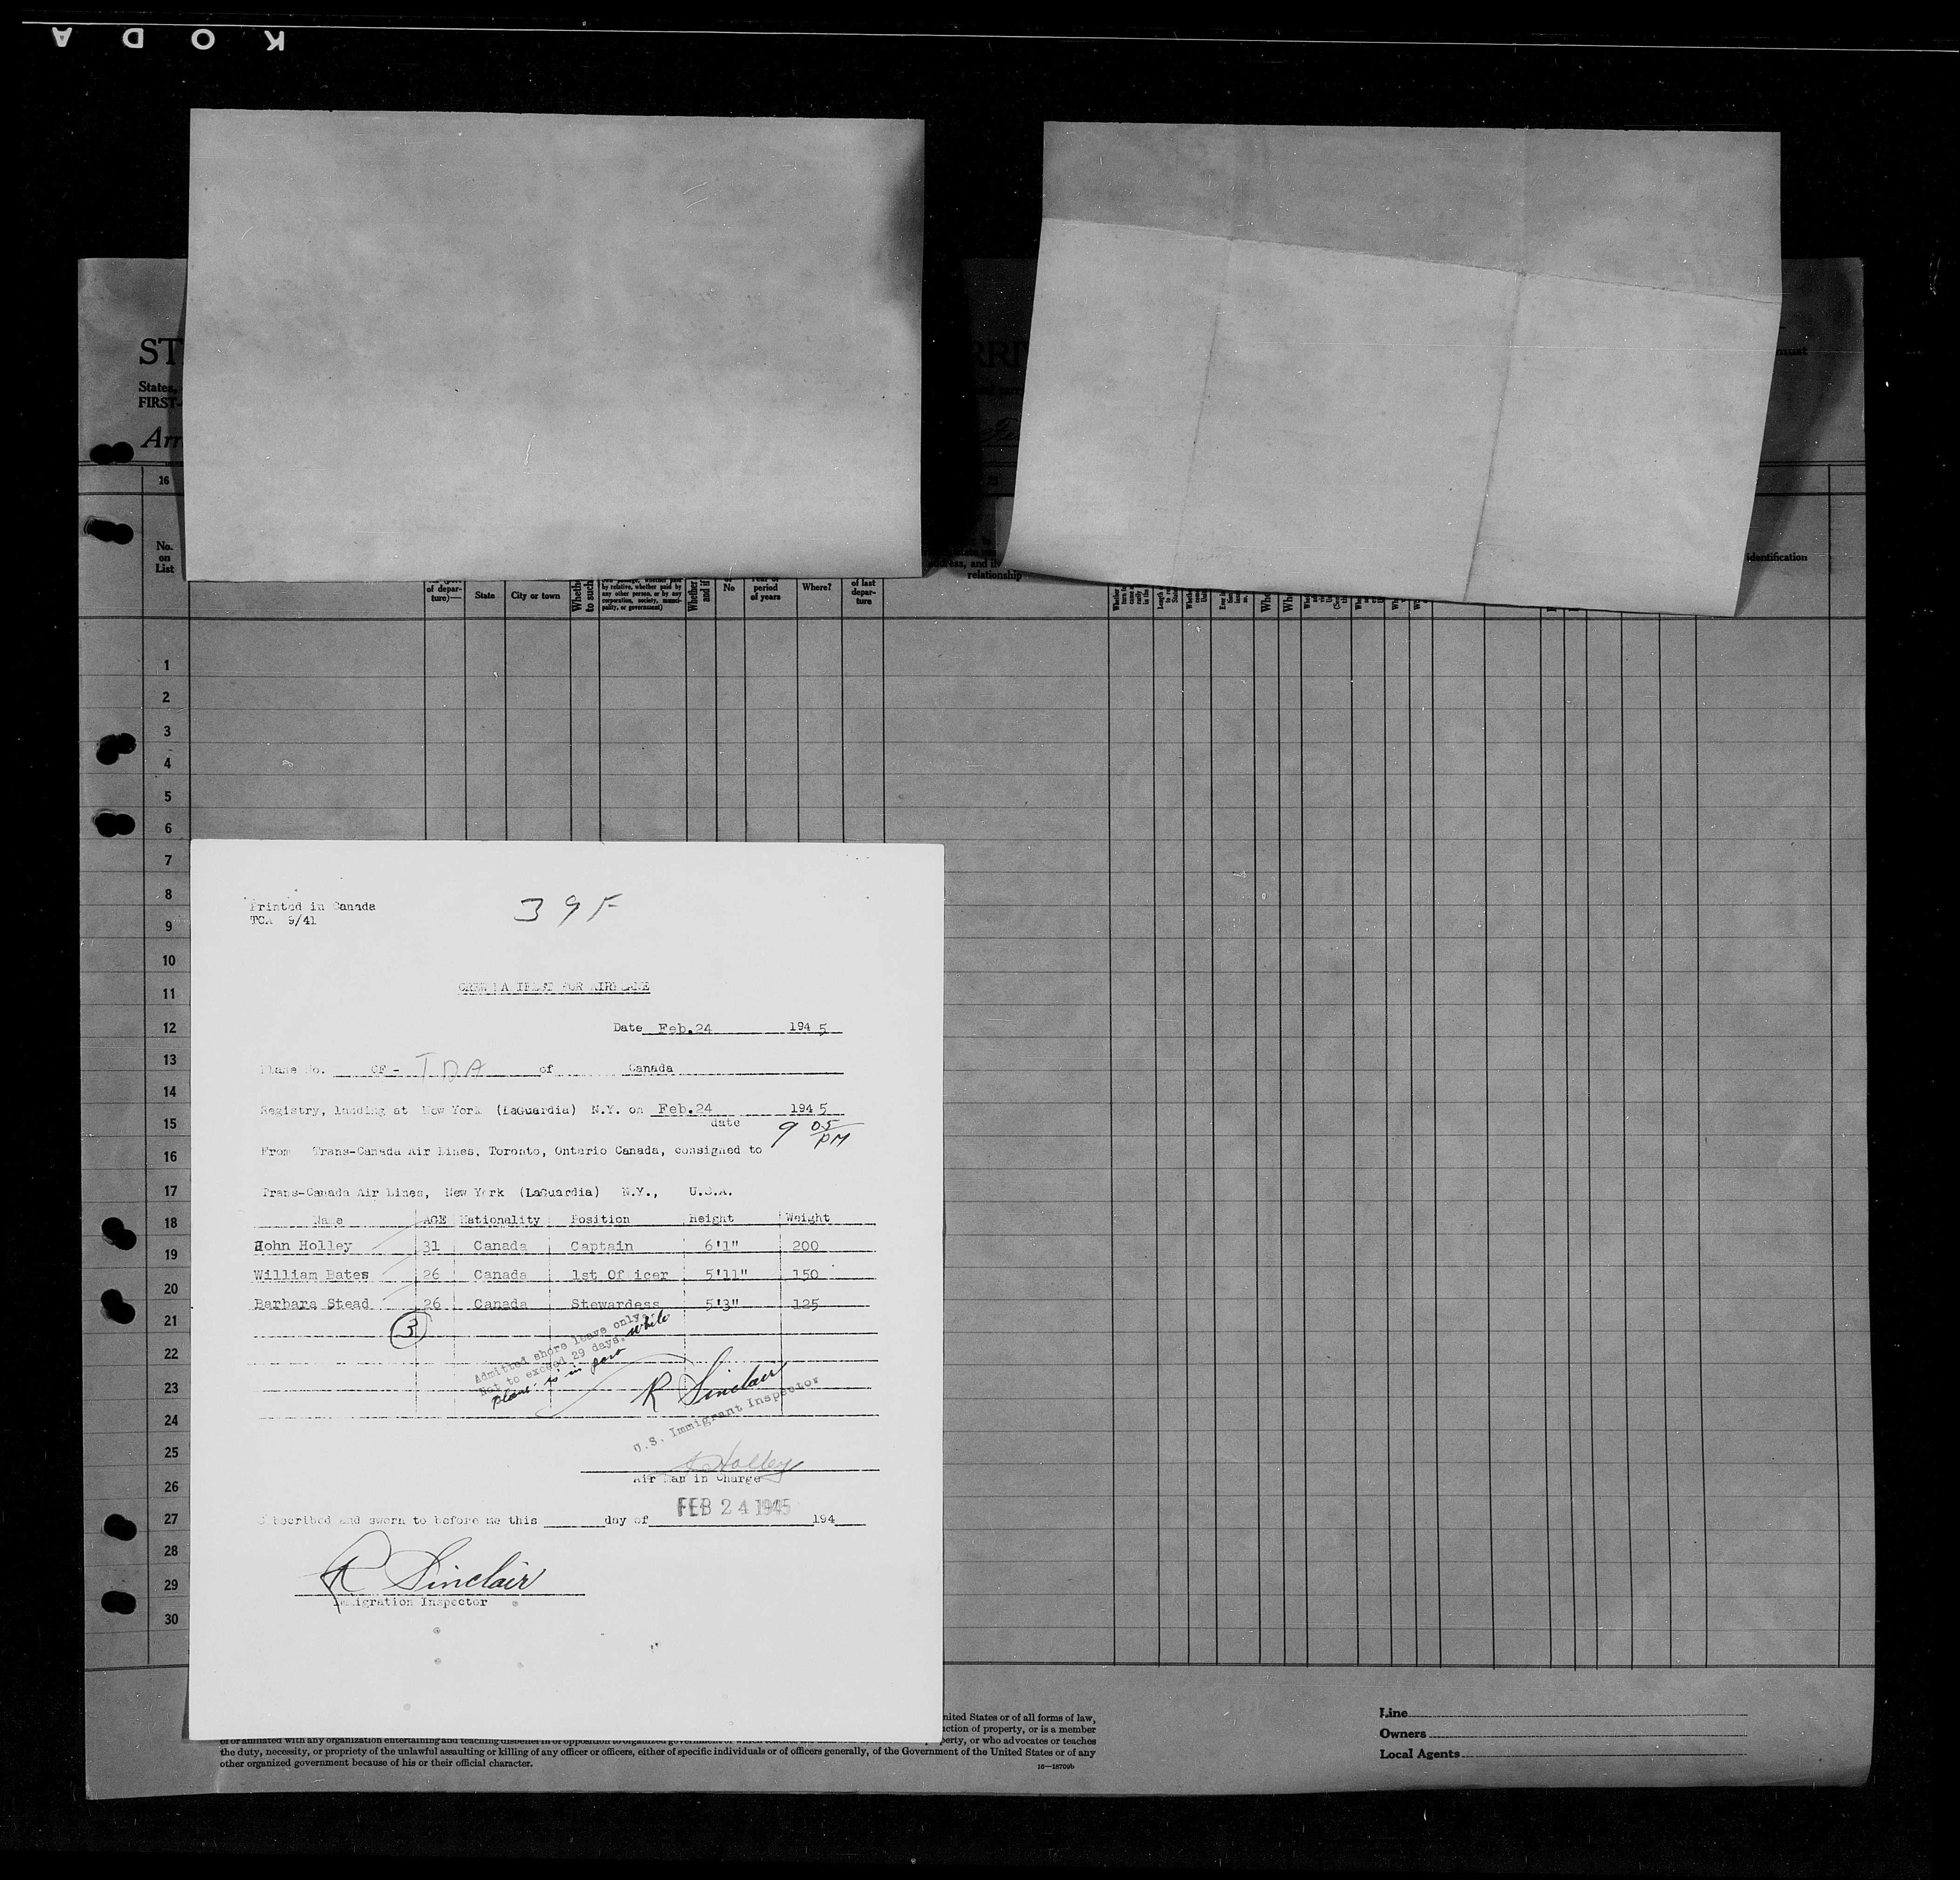 KODA
ST
States,
FIRST-
Arr
must
16
No.
on
List
of depar-
ture)—
State
City or town
by relative, whether paid by
any other person, or by any
corporation, society, munici-
pality, or government)
No
period
of years
Where?
of last
depar-
ture
address, and if
relationship
identification
1
2
3
4
5
6
7
8
9
10
11
12
13
14
15
16
17
18
19
20
21
22
23
24
25
26
27
28
29
30
Printed in Canada
TCA 9/41
39F
CREW MA IFEST FOR AIRPLANE
Date Feb.24 1945
Plane No. CF - TDA of Canada
Registry, landing at New York (LaGuardia) N.Y. on Feb.24 1945
date
9 05 PM
From Trans-Canada Air Lines, Toronto, Ontario Canada, consigned to
Trans-Canada Air Lines, New York (LaGuardia) N.Y., U.S.A.
Name AGE Nationality Position Height Weight
John Holley 31 Canada Captain 6'1" 200
William Bates 26 Canada 1st Of icer 5'11" 150
Barbara Stead 26 Canada Stewardess 5'3" 125
3
Admitted shore leave only.
Not to exceed 29 days. while
plane is in port
R Sinclair
U.S. Immigrant Inspector
J Holley
Air Man in Charge
FEB 24 1945
Subscribed and sworn to before me this day of 194
R Sinclair
Immigration Inspector
nited States or of all forms of law,
uction of property, or is a member
of or affiliated with any organization entertaining and teaching disbelief in or opposition to organized government or which teaches perty, or who advocates or teaches
the duty, necessity, or propriety of the unlawful assaulting or killing of any officer or officers, either of specific individuals or of officers generally, of the Government of the United States or of any
other organized government because of his or their official character.
16—18709b
Line
Owners
Local Agents